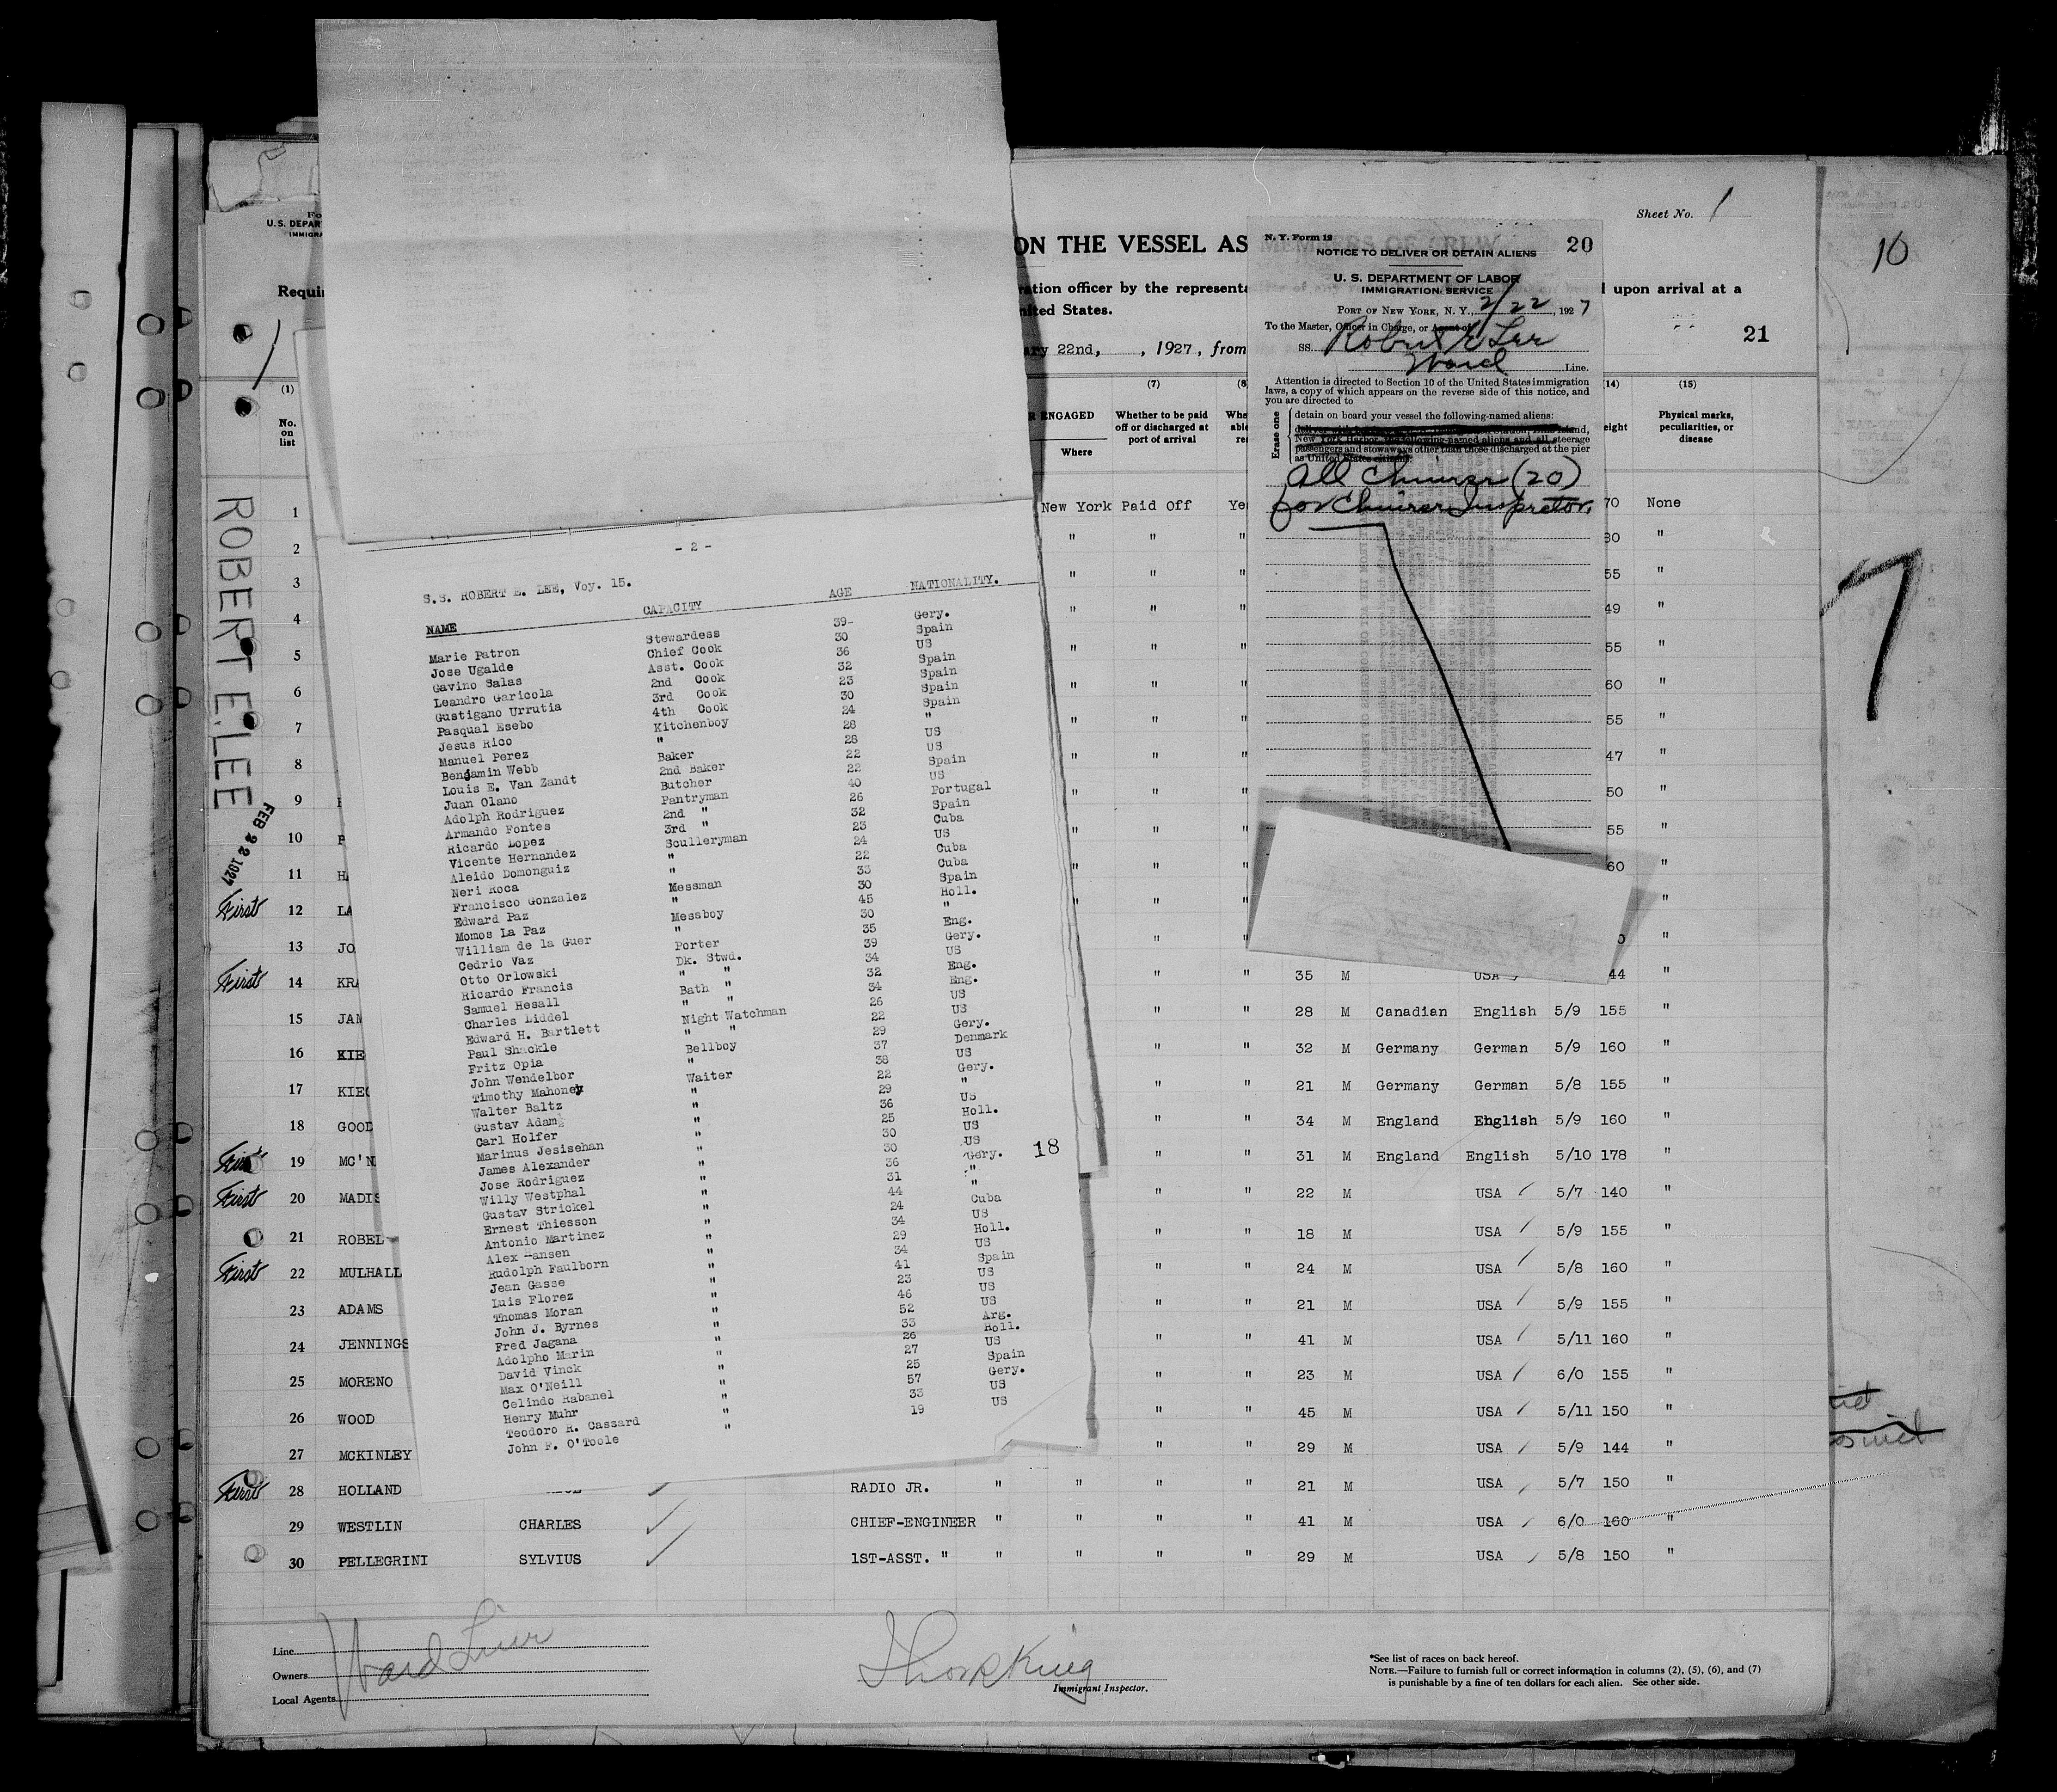 Sheet No. 1
10
U.S. DEPAR
IMMIGRA
ON THE VESSEL AS
Requi
ation officer by the representa
d upon arrival at a
nited States.
ary 22nd, , 1927, from
21
N. Y. Form 19
20
NOTICE TO DELIVER OR DETAIN ALIENS
U. S. DEPARTMENT OF LABOR
IMMIGRATION SERVICE
PORT OF NEW YORK, N. Y., 2/22, 1927
To the Master, Officer in Charge, or Agent of
SS. Robert E Lee
Ward Line.
Attention is directed to Section 10 of the United States immigration
laws, a copy of which appears on the reverse side of this notice, and
you are directed to
Erase one
detain on board your vessel the following-named aliens:
New York Harbor, the following-named aliens and all steerage
passengers and stowaways other than those discharged at the pier
as United States citizens:
All Chinese (20)
for Chinese Inspector.
(1) (7) (14) (15)
No. on list
R ENGAGED
Where
Whether to be paid off or discharged at port of arrival
eight
Physical marks, peculiarities, or disease
ROBERT E. LEE
FEB 22 1927
7
- 2 -
S.S. ROBERT E. LEE, Voy. 15.
NAME CAPACITY AGE NATIONALITY.
Marie Patron Stewardess 39- Gery.
Jose Ugalde Chief Cook 30 Spain
Gavino Salas Asst. Cook 36 US
Leandro Garicola 2nd Cook 32 Spain
Gustigano Urrutia 3rd Cook 23 Spain
Pasqual Esebo 4th Cook 30 Spain
Jesus Rico Kitchenboy 24 Spain
Manuel Perez " 28 "
Benjamin Webb Baker 28 US
Louis E. Van Zandt 2nd Baker 22 US
Juan Olano Butcher 22 Spain
Adolph Rodriguez Pantryman 40 US
Armando Fontes 2nd " 26 Portugal
Ricardo Lopez 3rd " 32 Spain
Vicente Hernandez Sculleryman 23 Cuba
Aleido Domonguiz " 24 US
Neri Roca " 22 Cuba
Francisco Gonzalez Messman 33 Cuba
Edward Paz " 30 Spain
Momos La Paz Messboy 45 Holl.
William de la Guer " 30 "
Cedrio Vaz Porter 35 Eng.
Otto Orlowski Dk. Stwd. 39 Gery.
Ricardo Francis " " 34 US
Samuel Hesall Bath " 32 Eng.
Charles Liddel " " 34 Eng.
Edward H. Bartlett Night Watchman 26 US
Paul Shackle " " 22 US
Fritz Opia Bellboy 29 Gery.
John Wendelbor " 37 Denmark
Timothy Mahoney Waiter 38 US
Walter Baltz " 22 Gery.
Gustav Adam " 29 "
Carl Holfer " 36 US
Marinus Jesisehan " 25 Holl.
James Alexander " 30 US
Jose Rodriguez " 30 US
Willy Westphal " 36 Gery.
Gustav Strickel " 31 "
Ernest Thiesson " 44 "
Antonio Martinez " 24 Cuba
Alex Hansen " 34 US
Rudolph Faulborn " 29 Holl.
Jean Gasse " 34 US
Luis Florez " 41 Spain
Thomas Moran " 23 US
John J. Byrnes " 46 US
Fred Jagana " 52 US
Adolpho Marin " 33 Arg.
David Vinck " 26 Holl.
Max O'Neill " 27 US
Celindo Rabanel " 25 Spain
Henry Muhr " 57 Gery.
Teodoro R. Cassard " 33 US
John F. O'Toole " 19 US
18
1 New York Paid Off Ye 70 None
2 " " " 80 "
3 " " " 55 "
4 " " " 49 "
5 " " " 55 "
6 " " " 60 "
7 " " " 55 "
8 " " " 47 "
9 " " " 50 "
10 " " " 55 "
11 HA " " " 60 "
First 12 LA " " " "
13 JO " " "
First 14 KRA " " 35 M USA 44 "
15 JAM " " 28 M Canadian English 5/9 155 "
16 KIE " " 32 M Germany German 5/9 160 "
17 KIEC " " 21 M Germany German 5/8 155 "
18 GOOD " " 34 M England English 5/9 160 "
First 19 MC'N " " 31 M England English 5/10 178 "
First 20 MADIS " " 22 M USA 5/7 140 "
21 ROBEL " " 18 M USA 5/9 155 "
First 22 MULHALL " " 24 M USA 5/8 160 "
23 ADAMS " " 21 M USA 5/9 155 "
24 JENNINGS " " 41 M USA 5/11 160 "
25 MORENO " " 23 M USA 6/0 155 "
26 WOOD " " 45 M USA 5/11 150 "
27 MCKINLEY " " 29 M USA 5/9 144 "
First 28 HOLLAND RADIO JR. " " " " 21 M USA 5/7 150 "
29 WESTLIN CHARLES CHIEF-ENGINEER " " " " 41 M USA 6/0 160 "
30 PELLEGRINI SYLVIUS 1ST-ASST. " " " " " 29 M USA 5/8 150 "
Line
Owners
Local Agents
Ward Line
Immigrant Inspector.
*See list of races on back hereof.
NOTE.—Failure to furnish full or correct information in columns (2), (5), (6), and (7)
is punishable by a fine of ten dollars for each alien. See other side.